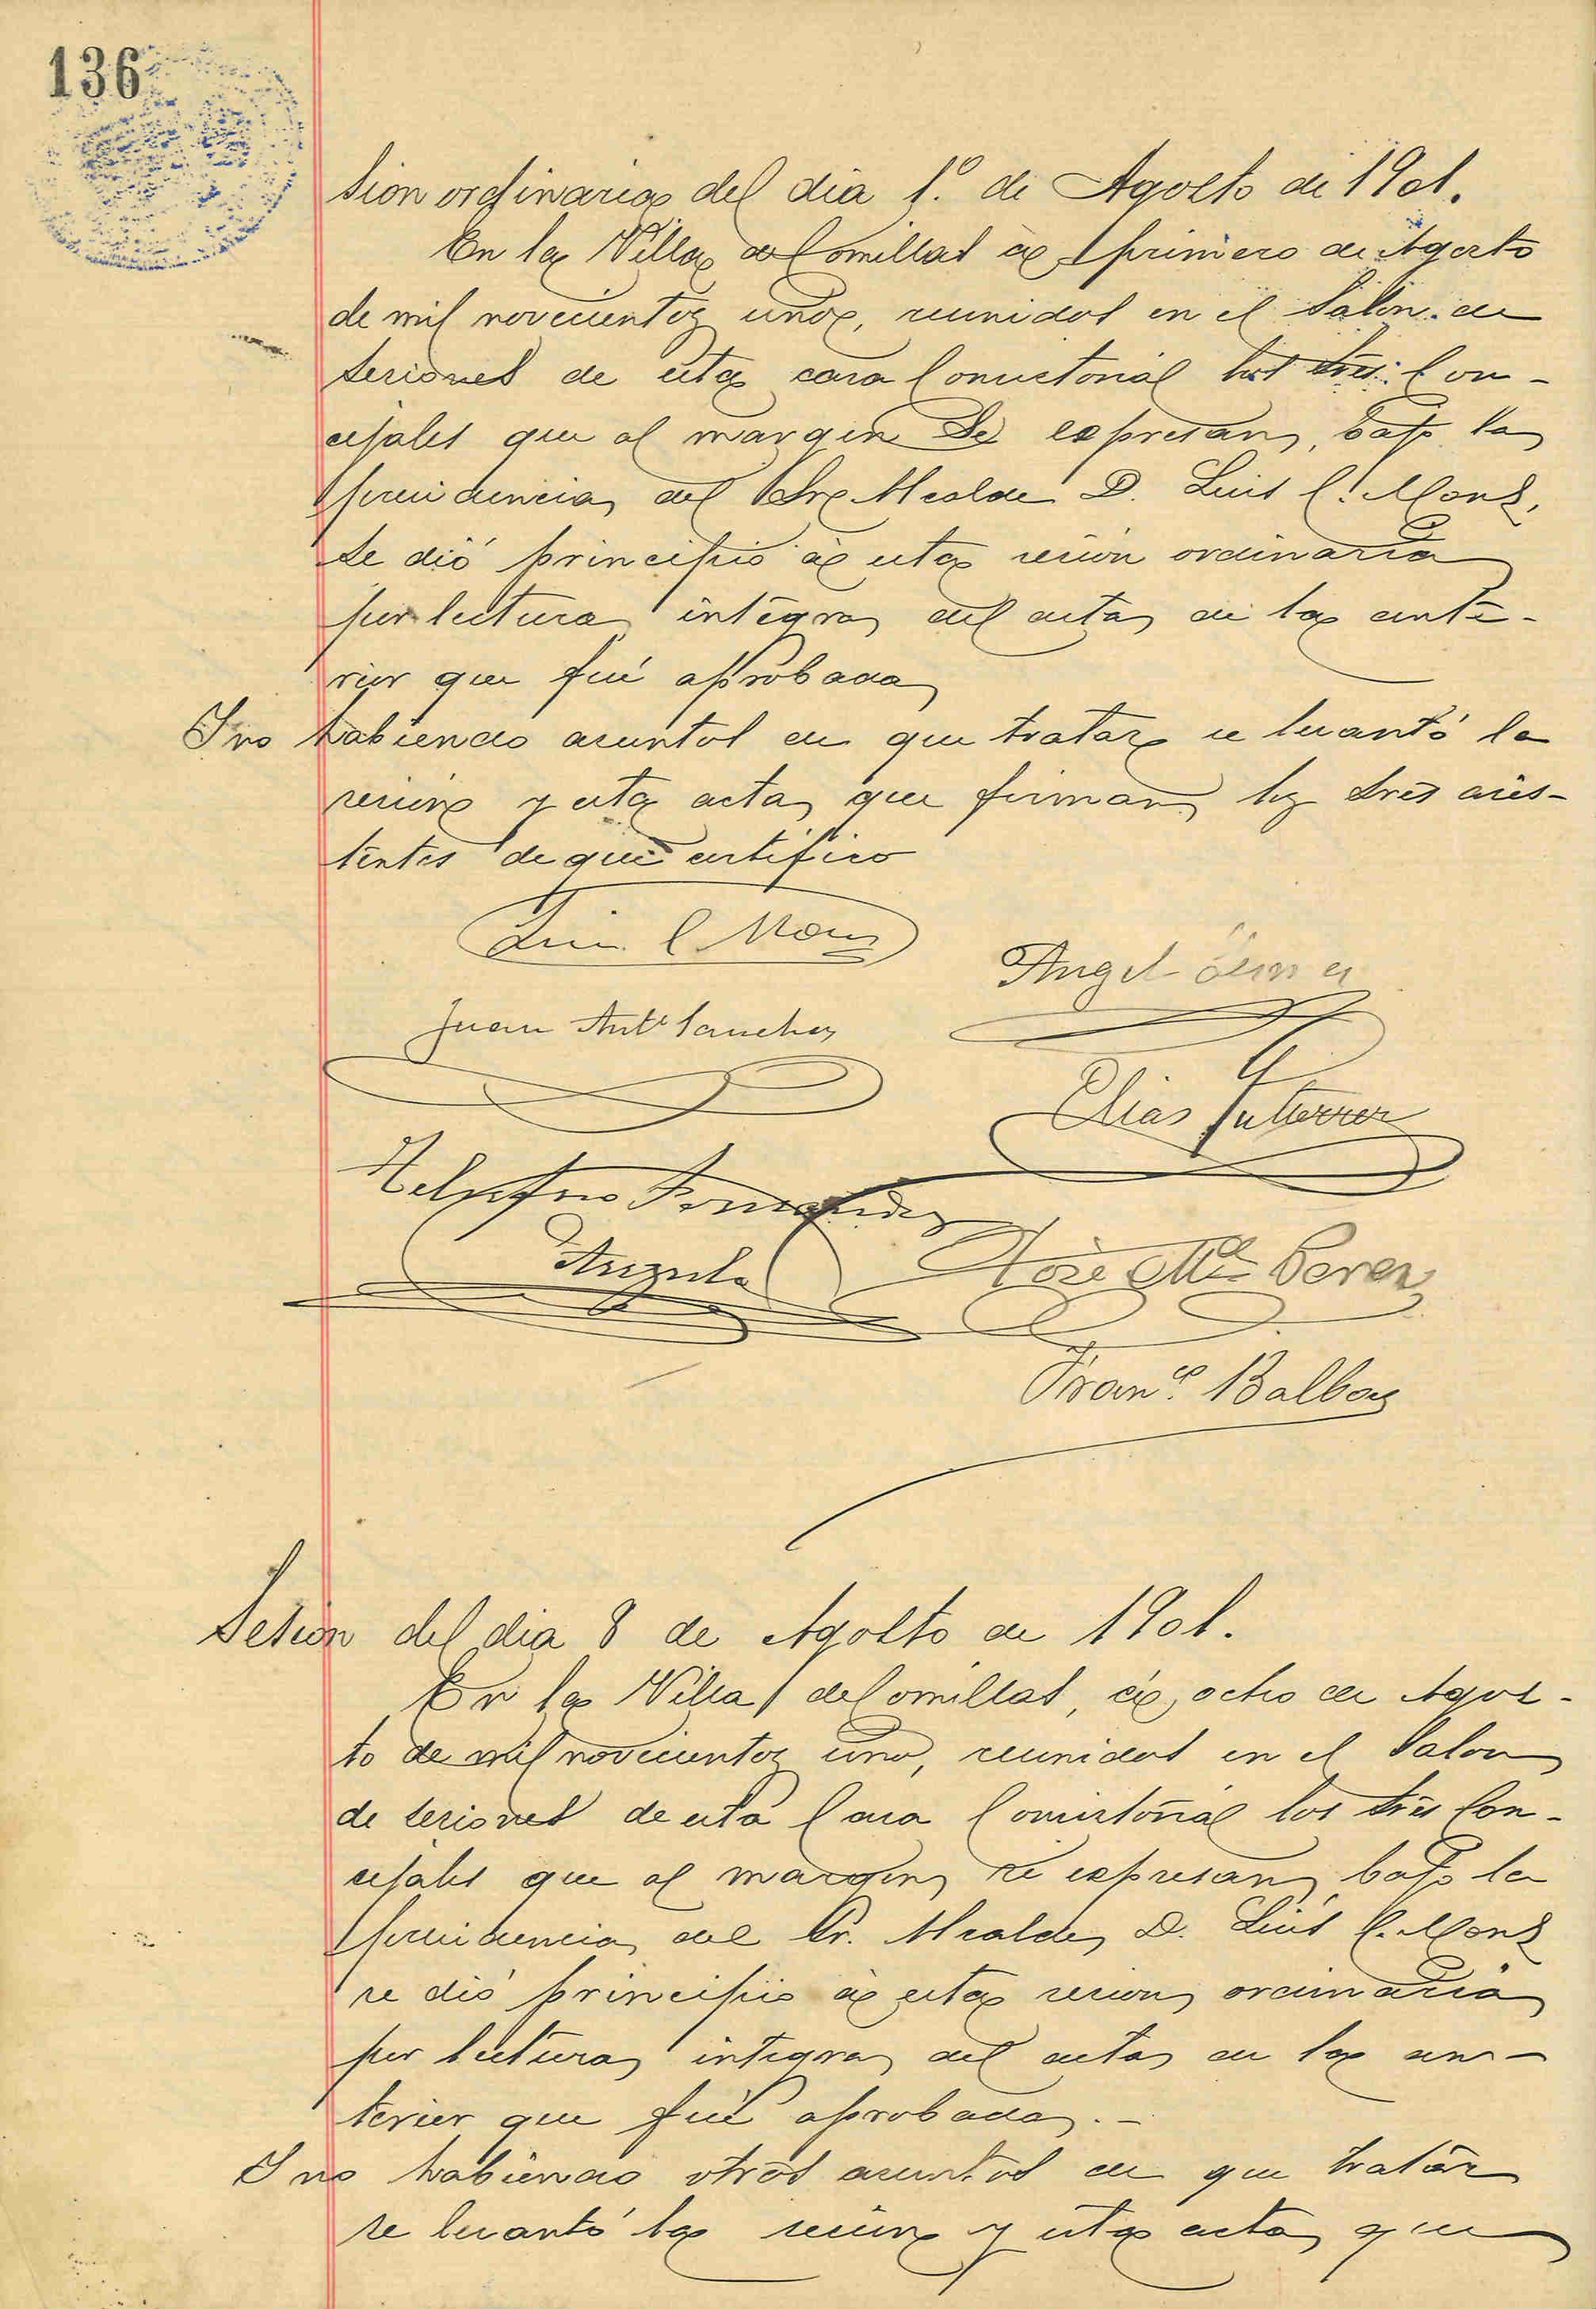 136
sion ordinaria del dia 1.º de Agosto de 1901.
En la Villa de Comillas à primero de Agosto
de mil novecientos uno, reunidos en el Salon de
sesiones de esta casa Consistorial los Sres. Con-
cejales que al margen se expresan, bajo la
presidencia del Sr. Alcalde D. Luis C. Monz,
se dió principio à esta sesion ordinaria
por lectura integra del acta de la ante-
rior que fué aprobada
Y no habiendo asuntos de que tratar se levantó la
sesion y esta acta que firman los Sres asis-
tentes de que certifico
Luis C. Monz
Angel
Juan Ant.º Sanchez
Elias Gutierrez
Telesforo Fernandez
Angulo
José M.ª Perez
Fran.co Balboa
Sesion del dia 8 de Agosto de 1901.
En la Villa de Comillas, à ocho de Agos-
to de mil novecientos uno, reunidos en el Salon
de sesiones de esta Casa Consistorial los Sres Con-
cejales que al margen se expresan, bajo la
presidencia del Sr. Alcalde, D. Luis C. Monz
se dió principio à esta sesion ordinaria
por lectura integra del acta de la an-
terior que fué aprobada.-
Y no habiendo otros asuntos de que tratar
se levantó la sesion y esta acta que